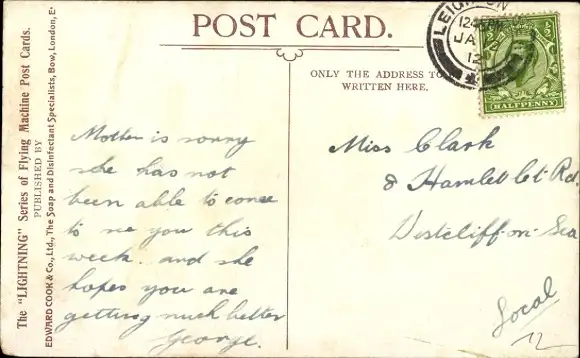 POST CARD.
The "LIGHTNING" Series of Flying Machine Post Cards.
PUBLISHED BY
EDWARD COOK & Co., Ltd., The Soap and Disinfectant Specialists, Bow, London, E.
ONLY THE ADDRESS TO
WRITTEN HERE.
LEIGH ON
JA
12
HALFPENNY
Mother is sorry
she has not
been able to come
to see you this
week. and she
hopes you are
getting much better
George.
Miss Clark
8 Hamlet Ct Rd
Westcliff-on-Sea
Local
12